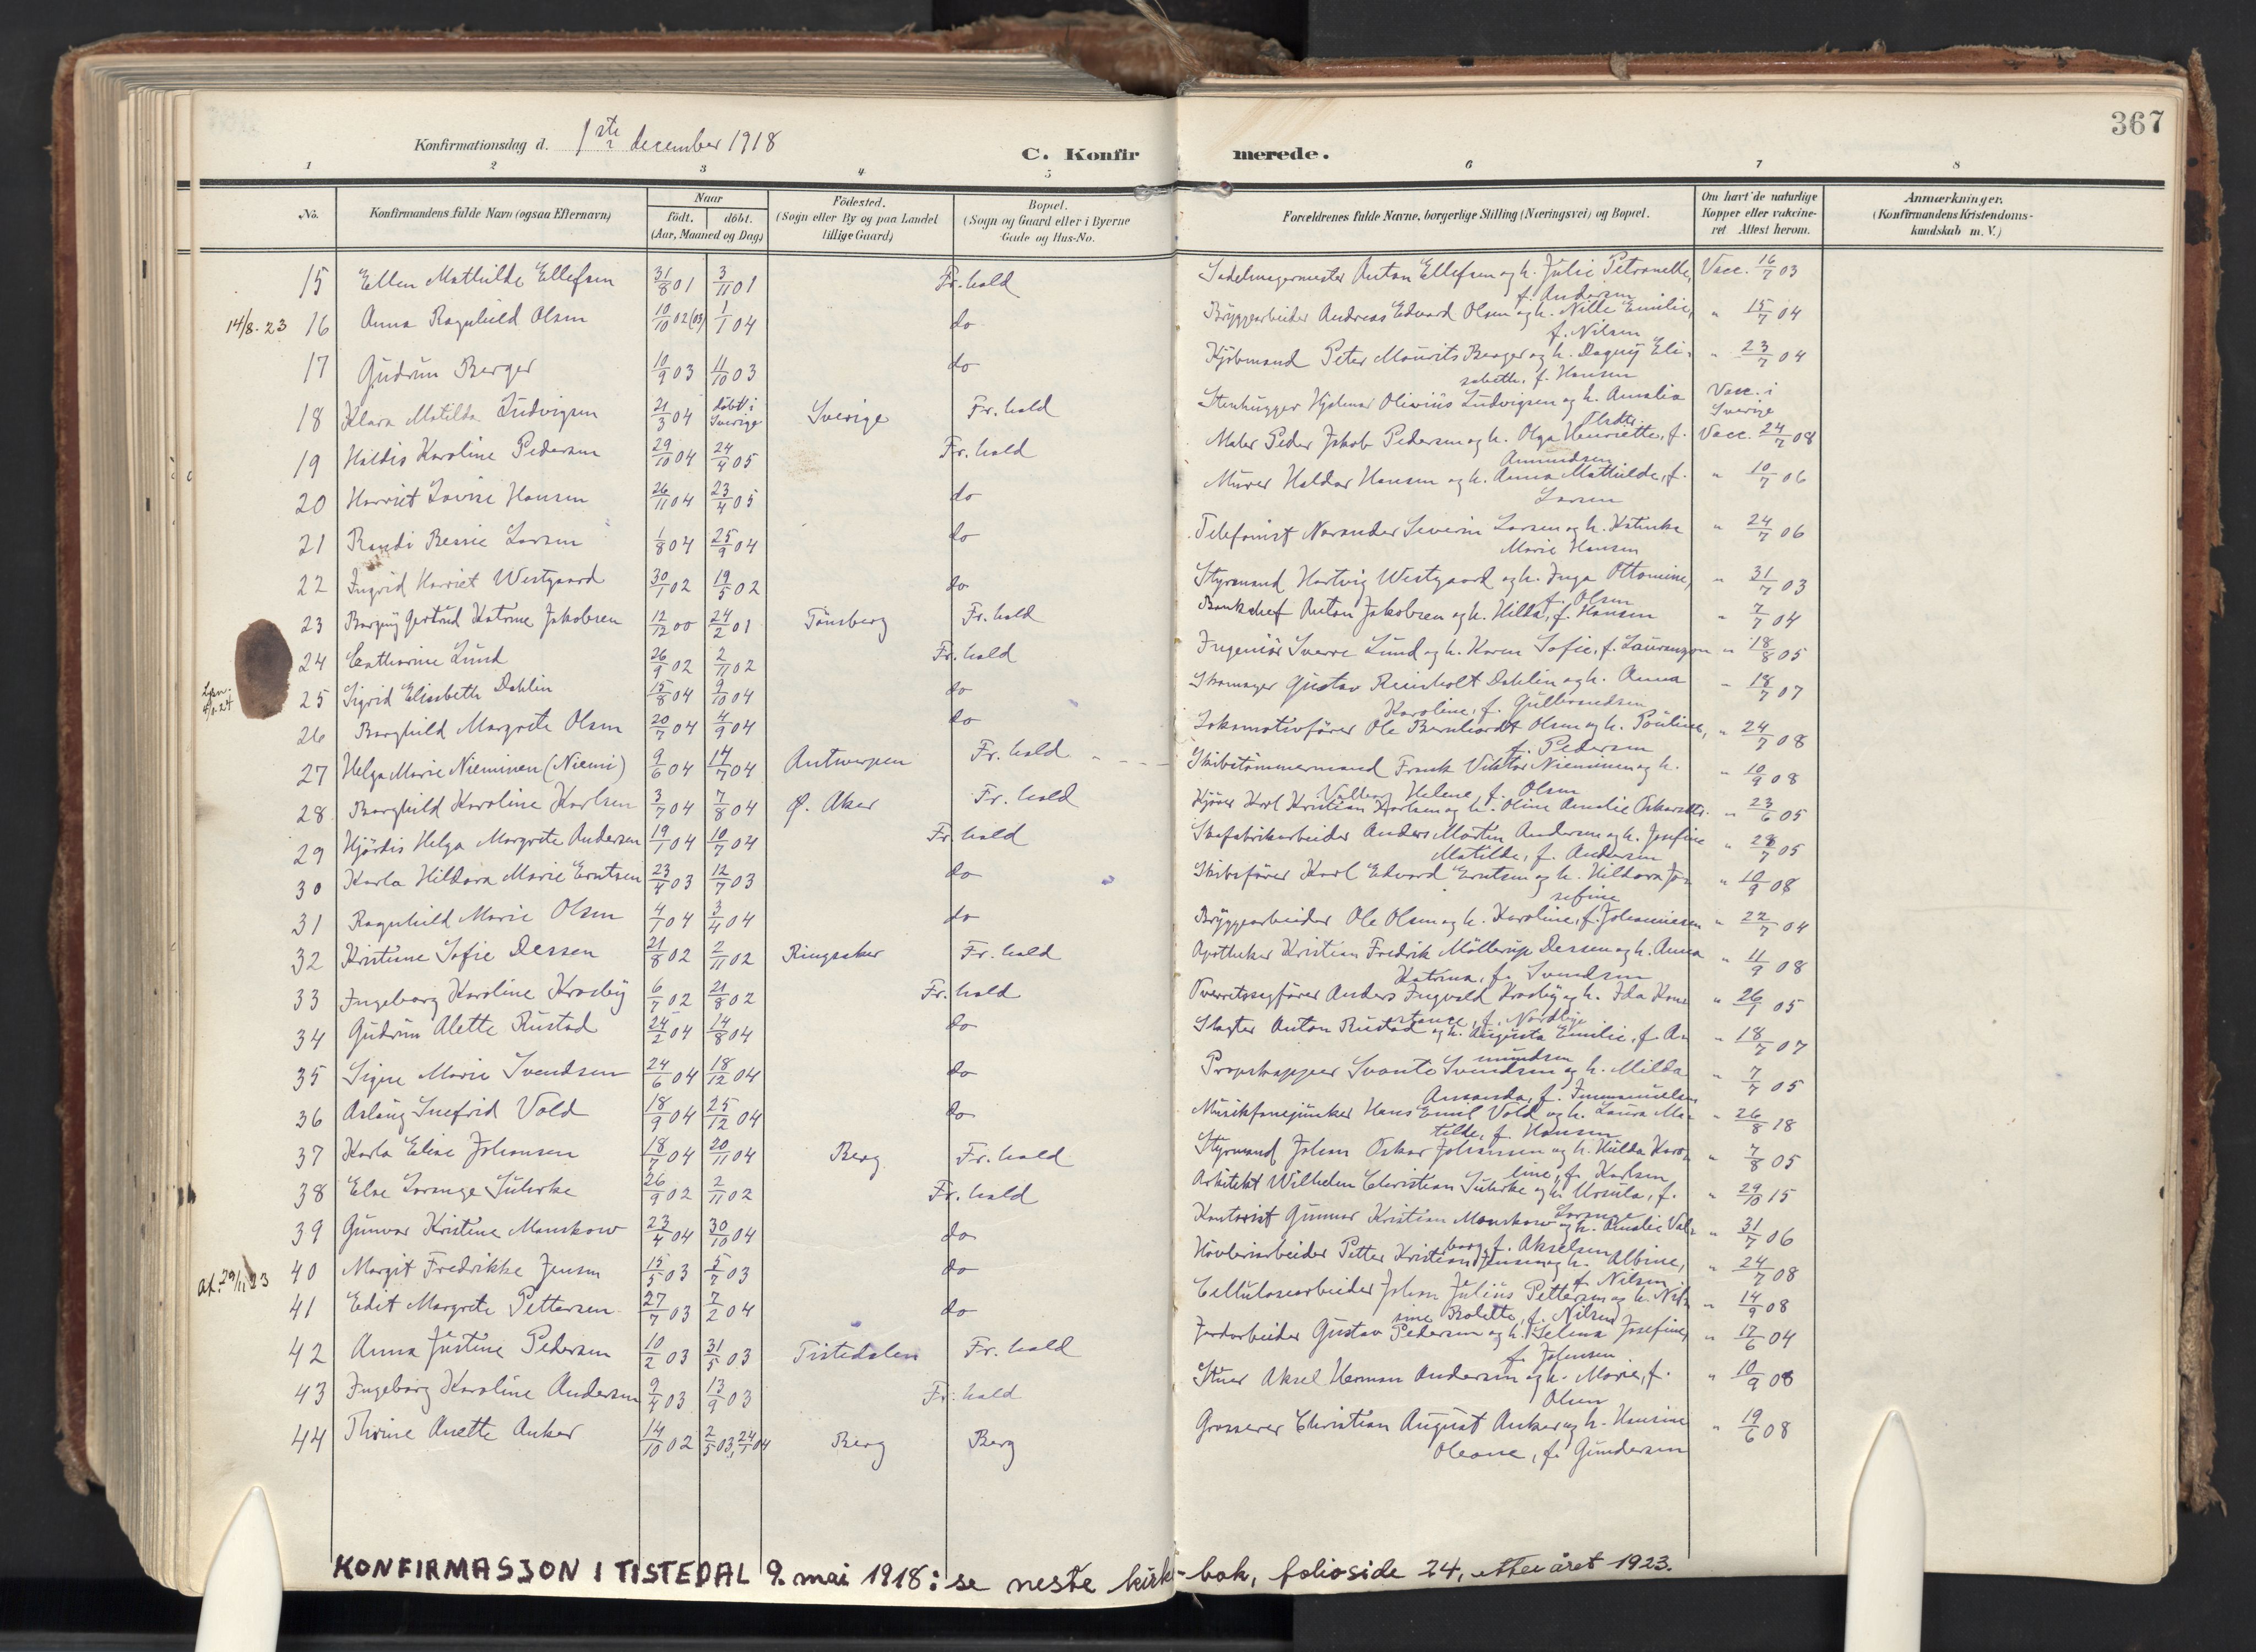 367
Konfirmationsdag d. 1ste december 1918
C. Konfirmerede.
1 2 3 4 5 6 7 8
No. Konfirmandens fulde Navn (ogsaa Efternavn) Naar født. døbt. (Aar, Maaned og Dag) Fødested. (Sogn eller By og paa Landet tillige Gaard) Bopæl. (Sogn og Gaard eller i Byerne Gade og Hus-No. Forældrenes fulde Navne, borgerlige Stilling (Næringsvei) og Bopæl. Om havt de naturlige Kopper eller vakcineret Attest herom. Anmærkninger. (Konfirmandens Kristendomskundskab m. V.)
15 Ellen Mathilde Ellefsen 31/8 01 3/11 01 Fr.hald Sadelmagermester Anton Ellefsen og h. Julie Petronelle, Vacc. 16/7 03
f. Andersen
14/8.23 16 Anna Ragnhild Olsen 10/10 02 (03) 1/1 04 do Bryggearbeider Andreas Edvard Olsen og h. Nille Emilie, " 15/7 04
f. Nilsen
17 Gudrun Berger 10/9 03 11/10 03 do Kjöbmand Peter Mourits Berger og h. Dagny Eli- " 23/7 04
sabeth, f. Hansen
18 Klara Matilda Ludvigsen 21/3 04 döbt i Sverige Sverige Fr.hald Stenhugger Hjalmar Olivius Ludvigsen og h. Amalia Vacc. i Sverige
19 Haldis Karoline Pedersen 29/10 04 24/4 05 Fr.hald Maler Peder Jakob Pedersen og h. Olga Henriette, f. Vacc. 24/7 08
Amundsen
20 Harriet Lovise Hansen 26/11 04 23/4 05 do Murer Haldor Hansen og h. Anna Mathilde, f. " 10/7 06
Larsen
21 Randi Bessie Larsen 1/8 04 25/9 04 do Telefonist Severin Larsen og h. Katinka " 24/7 06
Marie Hansen
22 Ingrid Harriet Westgaard 30/1 02 19/5 02 do Styrmand Hartvig Westgaard og h. Inga Ottomine, " 31/7 03
f. Olsen
23 Borgny Gertrud Katrine Jakobsen 12/12 00 24/2 01 Tönsberg Fr.hald Bankchef Anton Jakobsen og h. Hilda, f. Hansen " 7/7 04
24 Catharine Lund 26/9 02 2/11 02 Fr.hald Ingeniör Sverre Lund og h. Karen Sofie, f. Laurenzon " 18/8 05
25 Sigrid Elisabeth Dahlin 15/8 04 9/10 04 do Skomager Gustav Reinholt Dahlin og h. Anna " 18/7 07
Karoline, f. Gulbrandsen
26 Borghild Margrete Olsen 20/7 04 4/9 04 do Lokomotivförer Ole Bernhardt Olsen og h. Pauline, " 24/7 08
f. Pedersen
27 Helga Marie Nieminen (Niemi) 9/6 04 14/7 04 Antwerpen Fr.hald Skibstömmermand Frank Viktor Nieminen og h. " 10/9 08
Valborg Helene, f. Olsen
28 Borghild Karoline Karlsen 3/7 04 7/8 04 Ø. Aker Fr.hald Kjörer Karl Kristian Karlsen og h. Oline Amalie Oskarsdtr. " 23/6 05
29 Hjördis Helga Margrete Andersen 19/1 04 10/7 04 Fr.hald Skofabrikarbeider Anders Martin Andersen og h. Josefine " 28/7 05
Matilde, f. Andersen
30 Karla Hildora Marie Erntsen 23/4 03 12/7 03 do Skibsförer Karl Edvard Erntsen og h. Hildora Jo- " 10/9 08
sefine
31 Ragnhild Marie Olsen 4/1 04 3/4 04 do Bryggearbeider Ole Olsen og h. Karoline, f. Johannesen " 22/7 04
32 Kristine Sofie Dessen 21/8 02 2/11 02 Ringsaker Fr.hald Apotheker Kristian Fredrik Möllerup Dessen og h. Anna " 11/9 08
Katrina, f. Svendsen
33 Ingeborg Karoline Krosby 6/7 02 21/8 02 Fr.hald Overretssagförer Anders Ingvald Krosby og h. Ida Kon- " 26/7 05
stance, f. Nordbye
34 Gudrun Alette Rustad 24/2 04 14/8 04 do Slagter Anton Rustad og h. Augusta Emilie, f. A- " 18/7 07
mundsen
35 Signe Marie Svendsen 24/6 04 18/12 04 do Propskapper Svante Svendsen og h. Milda " 7/7 05
Amanda, f. Immanuelsen
36 Aslaug Snefrid Vold 18/9 04 25/12 04 do Musikfanejunker Hans Emil Vold og h. Laura Ma- " 26/8 18
tilde, f. Hansen
37 Karla Elise Johansen 18/7 04 20/11 04 Berg Fr.hald Styrmand Johan Oskar Johansen og h. Hulda Karo- " 7/8 05
line, f. Karlsen
38 Else Sorenge Suhrke 26/9 02 2/11 02 Fr.hald Arkitekt Wilhelm Christian Suhrke og h. Ursula, f. " 29/10 15
39 Gunvor Kristine Manskow 23/4 04 30/10 04 do Kontorist Gunnar Kristian Manskow og h. Amalie Val- " 31/7 06
borg, f. Akselsen
At. 29/11 23 40 Margit Fredrikke Jensen 15/5 03 5/7 03 do Hövleriarbeider Petter Kristian Jensen og h. Albine, " 24/7 08
f. Nilsen
41 Edit Margrete Pettersen 27/7 03 7/2 04 do Cellulosearbeider Johan Julius Pettersen og h. " 14/9 08
sine Bolette, f. Nilsen
42 Anna Justine Pedersen 10/2 03 31/5 03 Tistedalen Fr.hald Jordarbeider Gustav Pedersen og h. Selma Josefine, " 17/6 04
f. Johansen
43 Ingeborg Karoline Andersen 9/4 03 13/9 03 Fr.hald Stuer Aksel Herman Andersen og h. Marie, f. " 10/9 08
Olsen
44 Thrine Anette Anker 14/10 02 2/5 03, 24/1 04 Berg Berg Grosserer Christian August Anker og h. Hansine " 19/6 08
Oleane, f. Gundersen
KONFIRMASJON I TISTEDAL 9. mai 1918: se neste kirke-bok, folioside 24, etter året 1923.